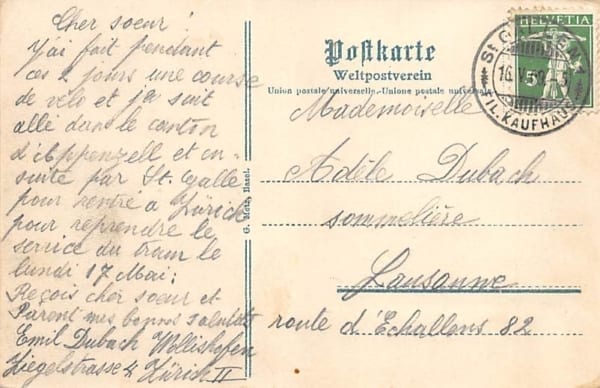 Cher soeur!
J'ai fait pendant
ces 2 jours une course
de velo et j'a suit
allé dans le canton
d'Appenzell et en-
suite par St. Galle
pour rentré a Zürich
pour reprendre le
service du tram le
lundi 17 Mai:
Reçois cher soeur et
Parent mes bonnes salutats
Emil Dubach Wollishofen
Ziegelstrasse 4 Zürich II
Postkarte
Weltpostverein
Union postale universelle.-Unione postale universale
G. Metz, Basel.
HELVETIA
5
ST. GALLEN 1
16. V. 09.
FIL. KAUFHAUS
Mademoiselle
Adèle Dubach
sommelière
Lausanne
route d'Echallens 82